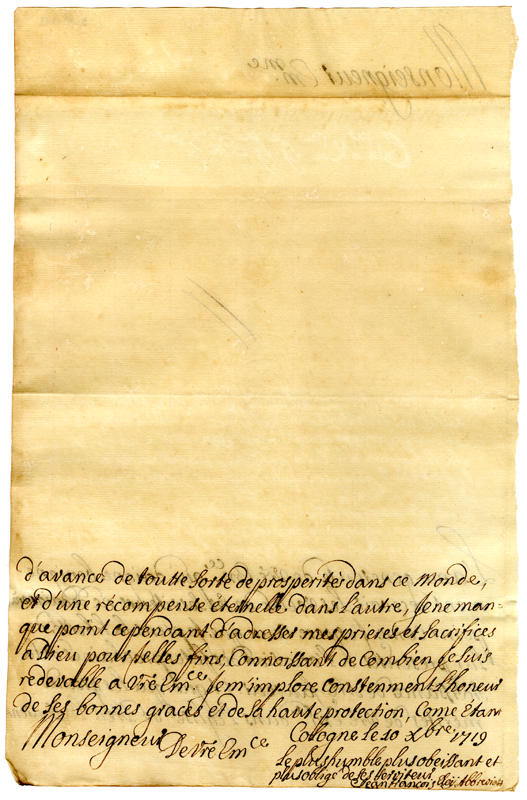 Monseigneur Em.me
d'avance de toutte sorte de prosperités dans ce Monde,
et d'une récompense éternelle dans l'autre, Je ne man-
que point cependant d'adresses mes prieres et sacrifices
a Dieu pour telles fins, Connoissant de Combien je suis
redevable a Vrê Em.ce, Jem implore Constenment l'honeur
de ses bonnes graces et de sa haute protection, Come Etan
Monseigneur De Vrê Em.ce Cologne le 10 Xbre 1719
Le plus humble plus obeissant et
plus obligé de ses Serviteur
Jean François